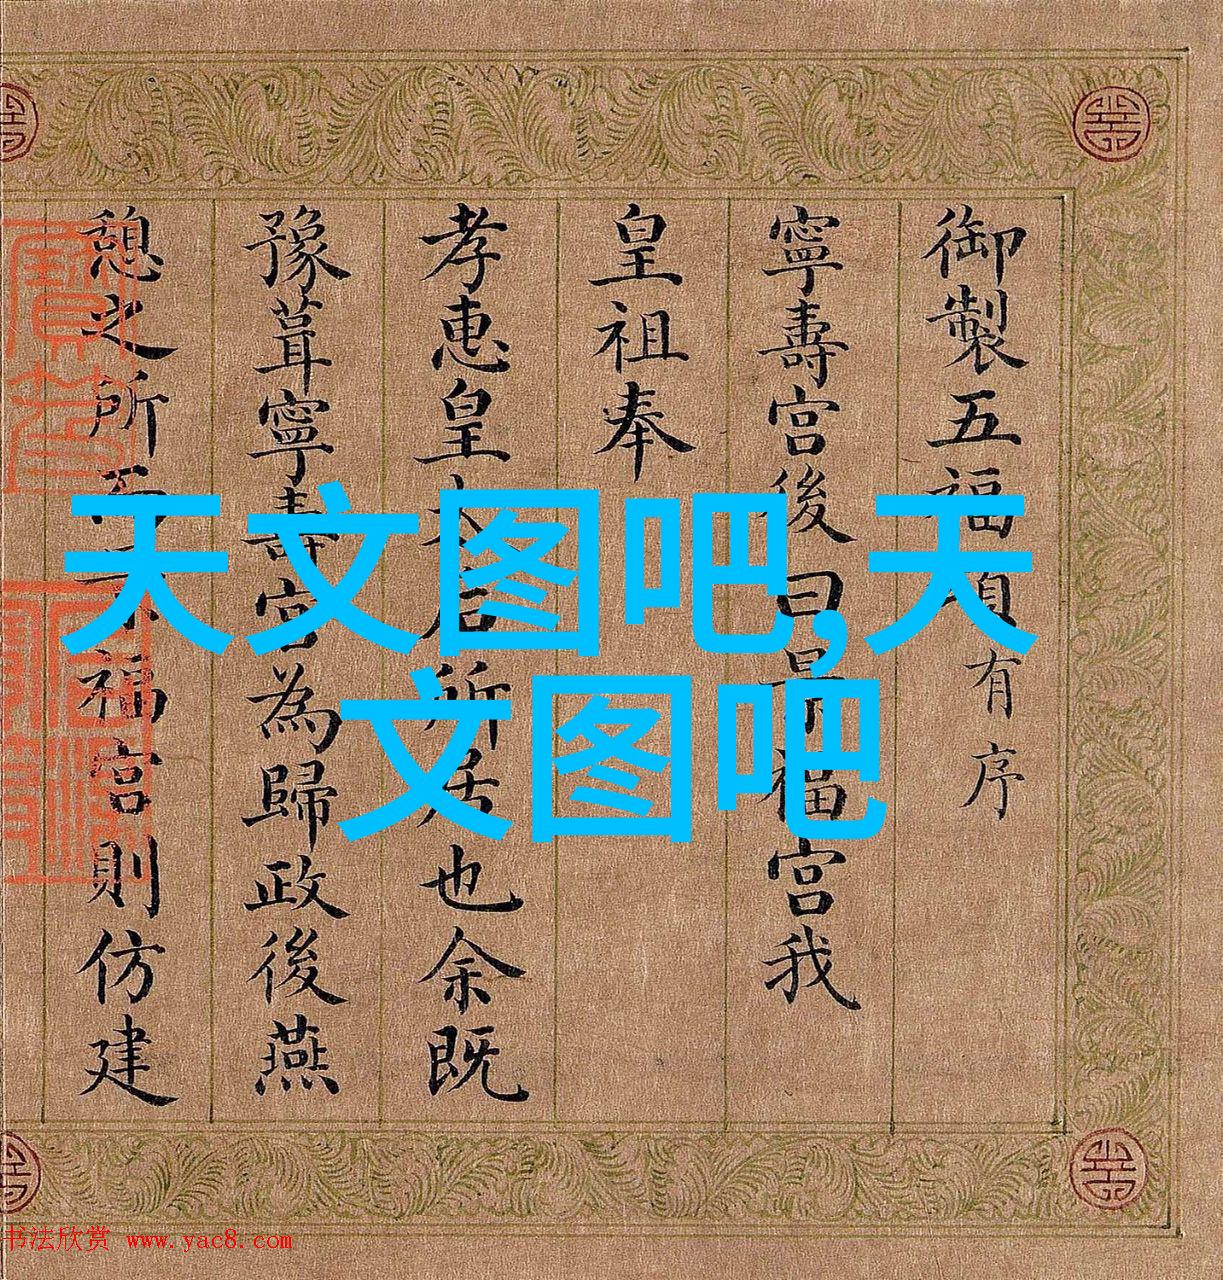 御製五福頌有序
寧壽宮後曰景福宮我
皇祖奉
孝惠皇太后所居也余既
豫葺寧壽宮為歸政後燕
憩之所而景福宮則仿建
天文图吧,天
文图吧
书法欣赏 www.yac8.com